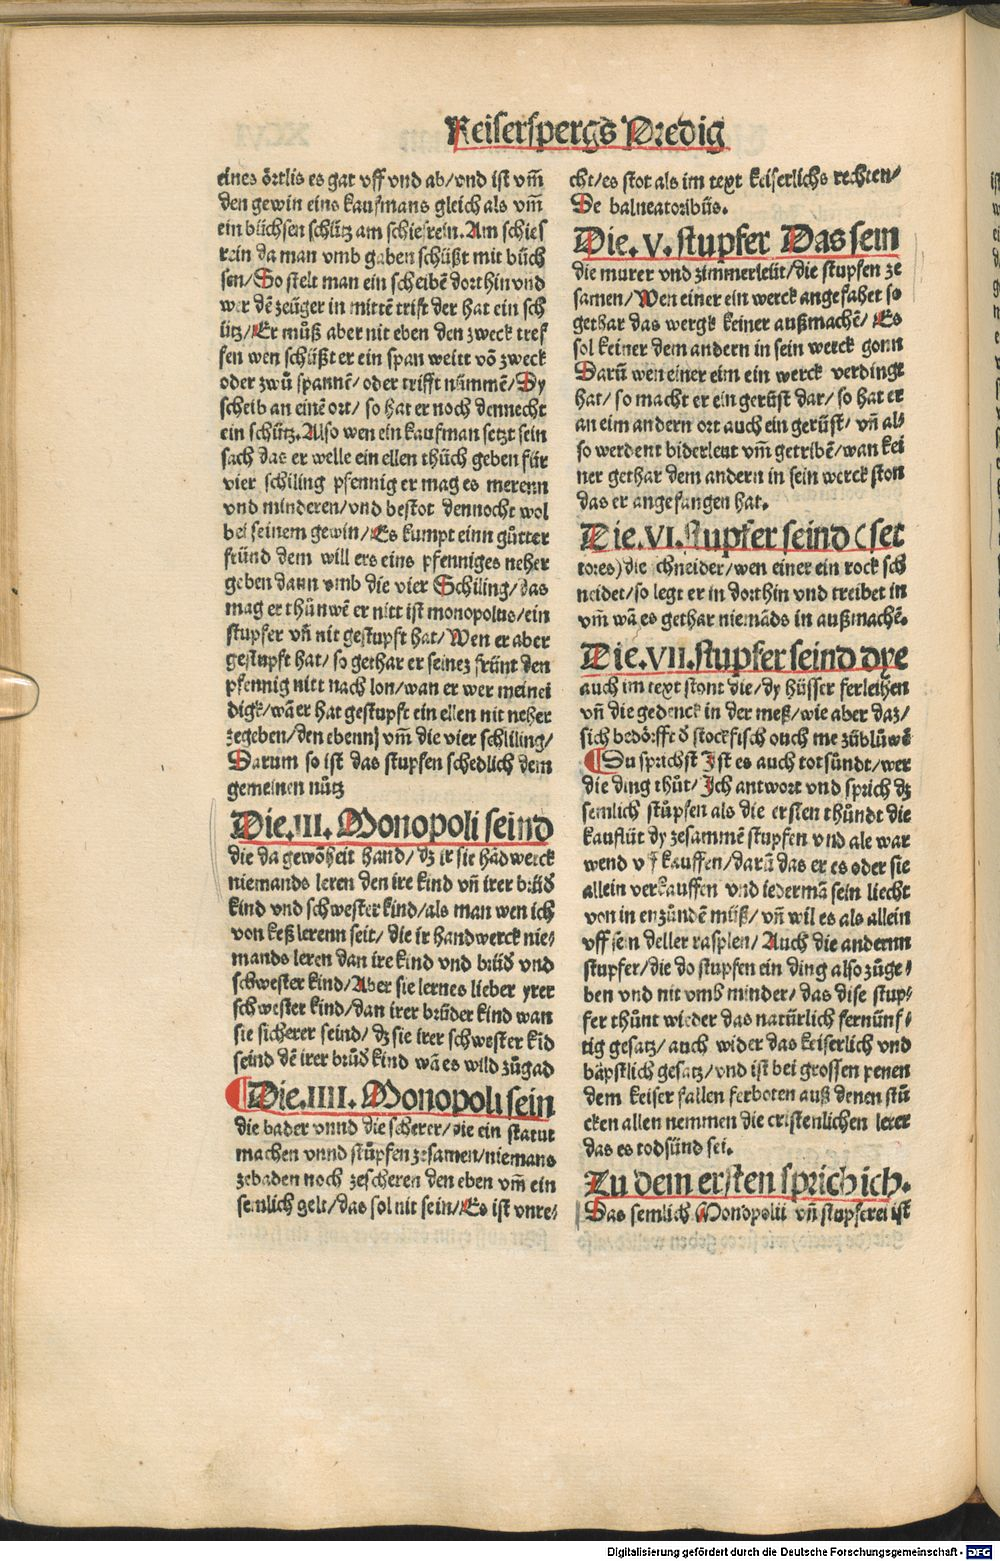 Keiserspergs Predig
eines örtlis es gat vff vnd ab/vnd ist vm̄
den gewin eins kaufmans gleich als vm̄
ein büchsen schütz am schiesrein. Am schies
rein da man vmb gaben schüßt mit büch
sen/So stelt man ein scheibē dort hin vnd
wer dē zeüger in mittē trift der hat ein sch
ütz/Er můß aber nit eben den zweck tref
fen wen schüßt er ein span weitt vō zweck
oder zwů spannē/oder trifft nůmmē/Dy
scheib an einē ort/ so hat er noch dennecht
ein schütz. Also wen ein kaufman setzt sein
sach das er welle ein ellen thůch geben für
vier schiling pfennig er mag es merenn
vnd minderen/vnd bestot dennocht wol
bei seinem gewin/Es kumpt einn gůtter
fründ dem will ers eins pfenniges neher
geben dann vmb die vier Schiling/das
mag er thůn wē er nitt ist monopolus/ein
stupfer vn̄ nit gestupft hat/Wen er aber
gestupft hat/so gethar er seinez frünt den
pfennig nitt nach lon/wan er wer meinei
digk/wā er hat gestupft ein ellen nit neher
zegeben/den ebenn vm̄ die vier schliling/
Darum so ist das stupfen schedlich dem
gemeinen nůtz
Die.III. Monopoli seind
die da gewōheit hand/ dz ir sie hādwerck
niemands leren den ire kind vn̄ irer brůd̄
kind vnd schwester kind/als man wen ich
von keß lerenn seit/ die ir handwerck nie/
mands leren dan ire kind vnd brůd̄ vnd
schwester kind/Aber sie lernes lieber yrer
schwester kind/dan irer brůder kind wan
sie sicherer seind/ dz sie irer schwester kīd
seind dē irer brůd̄ kind wā es wild zůgad
¶Die.IIII. Monopoli sein
die bader vnnd die scherer/die ein statut
machen vnnd stůpfen zesamen/niemans
zebaden noch zescheren den eben vm̄ ein
semlich gelt/das sol nit sein/Es ist vnre/
cht/es stot als im text keiserlichs rechten/
De balneatoribūs.
Die. V. stupfer Das sein
die murer vnd zimmerleüt/die stupfen ze
samen/Wen einer ein werck angefahet so
gethar das wergk keiner außmachē/Es
sol keiner dem andern in sein werck gonn
Darū wen einer eim ein werck verdingt
hat/so macht er ein gerüst dar/so hat er
an eim andern ort auch ein gerüst/ vn̄ al/
so werdent biderleut vm̄ getribē/wan kei
ner gethar dem andern in sein werck ston
das er angefangen hat.
Die. VI. stupfer seind (sec
tores) die schneider/wen einer ein rock sch
neidet/so legt er in dorthin vnd treibet in
vm̄ wā es gethar niemāds in außmachē.
Die.VII.stupfer seind dye
auch im text stont die/dy hüsser ferleihen
vn̄ die gedenck in der meß/wie aber daz/
sich bedörfft d̄ stockfisch ouch me zůblüwē
¶Du sprichst Ist es auch totsündt/wer
die ding thůt/Ich antwort vnd sprich dz
semlich stůpfen als die ersten thůndt die
kauflüt dy zesammē stupfen vnd ale war
wend vff kauffen/darū das er es oder sie
allein verkauffen vnd iedermā sein liecht
von in enzündē müß/vn̄ wil es als allein
vff sein deller rasplen/Auch die andernn
stupfer/die do stupfen ein ding also zůge/
ben vnd nit vmb minder/ das dise stup/
fer thůnt wieder das natürlich fernünf/
tig gesatz/auch wider das keiserlich vnd
bäpstlich gesatz/vnd ist bei grossen penen
dem keiser fallen ferboten auß denen stü
cken allen nemmen die cristenlichen lerer
das es todsünd sei.
Zu dem ersten sprich ich.
Das semlich Monopolii vn̄ stupferei ist
Digitalisierung gefördert durch die Deutsche Forschungsgemeinschaft - DFG